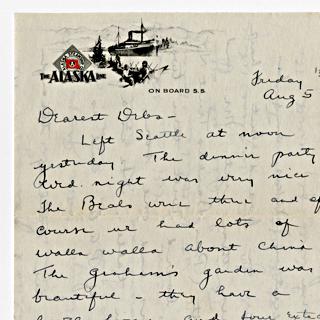 THE ALASKA LINE
ON BOARD S.S.
Friday
Aug 5
Dearest Debs -
Left Seattle at noon
yesterday The dinner party
Wed. night was very nice
The Beals were there and of
course we had lots of
walla walla about China
The Graham's garden was
beautiful - they have a